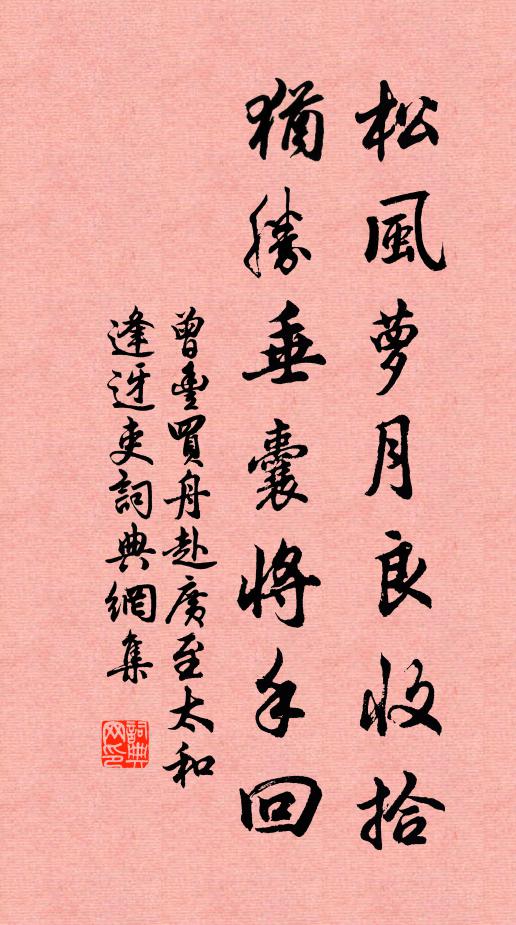 松風夢月良收拾
猶勝垂囊將手回
曾豐買舟赴廣至太和
逢迓吏詞典網集
詞典網印